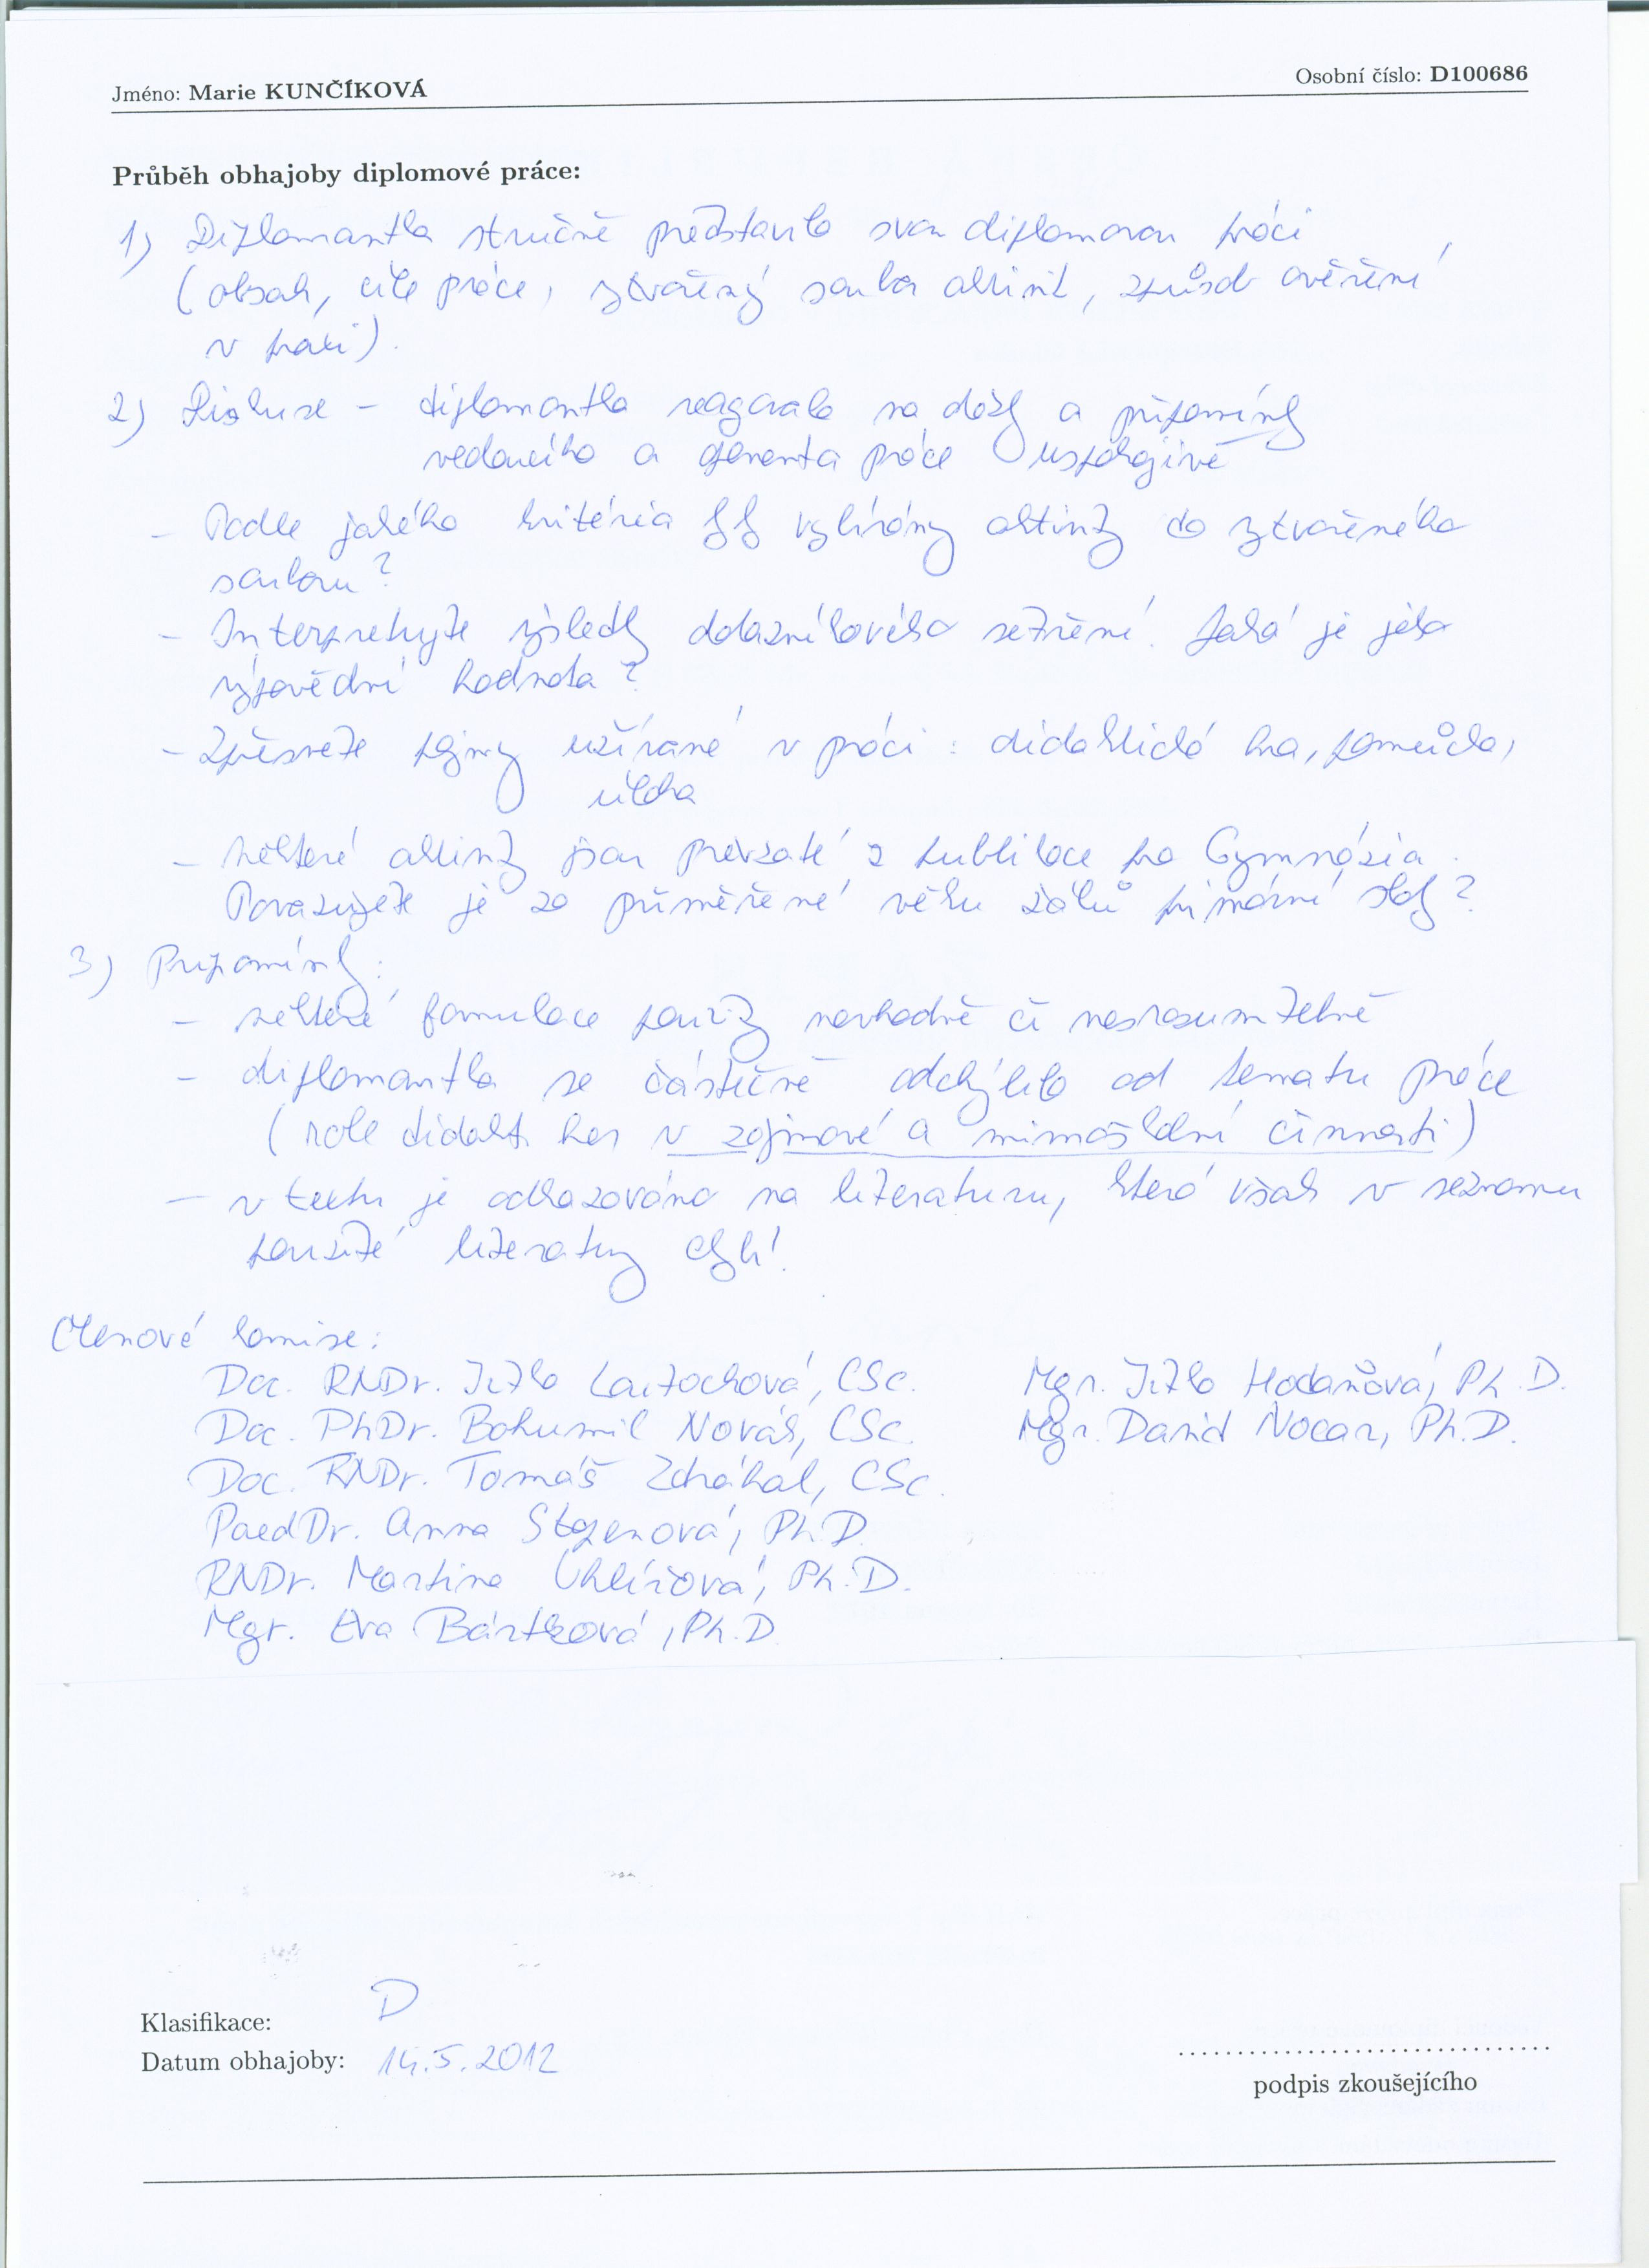 Jméno: Marie KUNČÍKOVÁ
Osobní číslo: D100686
Průběh obhajoby diplomové práce:
1) Diplomantka stručně představila svou diplomovou práci
(obsah, cíle práce, vytvořený soubor aktivit, způsob ověření
v praxi).
2) Diskuse – diplomantka reagovala na dotazy a připomínky
vedoucího a oponenta práce uspokojivě
– Podle jakého kritéria byly vybírány aktivity do vytvořeného
souboru?
– Interpretujte výsledky dotazníkového šetření. Jaká je jeho
výpovědní hodnota?
– Zpřesněte pojmy užívané v práci: didaktická hra, pomůcka,
úloha
– některé aktivity jsou převzaté z publikace pro Gymnázia.
Považujete je za přiměřené věku žáků primární školy?
3) Připomínky:
– některé formulace použity nevhodně či nesrozumitelně
– diplomantka se částečně odchýlila od tematu práce
(role didakt. her v zájmové a mimoškolní činnosti)
– v textu je odkazováno na literaturu, která však v seznamu
použité literatury chybí!
Členové komise:
Doc. RNDr. Jitka Laitochová, CSc.
Mgr. Jitka Hodaňová, Ph.D.
Doc. PhDr. Bohumil Novák, CSc.
Mgr. David Nocar, Ph.D.
Doc. RNDr. Tomáš Zdráhal, CSc.
PaedDr. Anna Stopenová, Ph.D.
RNDr. Martina Uhlířová, Ph.D.
Mgr. Eva Bártková, Ph.D.
Klasifikace: D
Datum obhajoby: 14.5.2012
podpis zkoušejícího